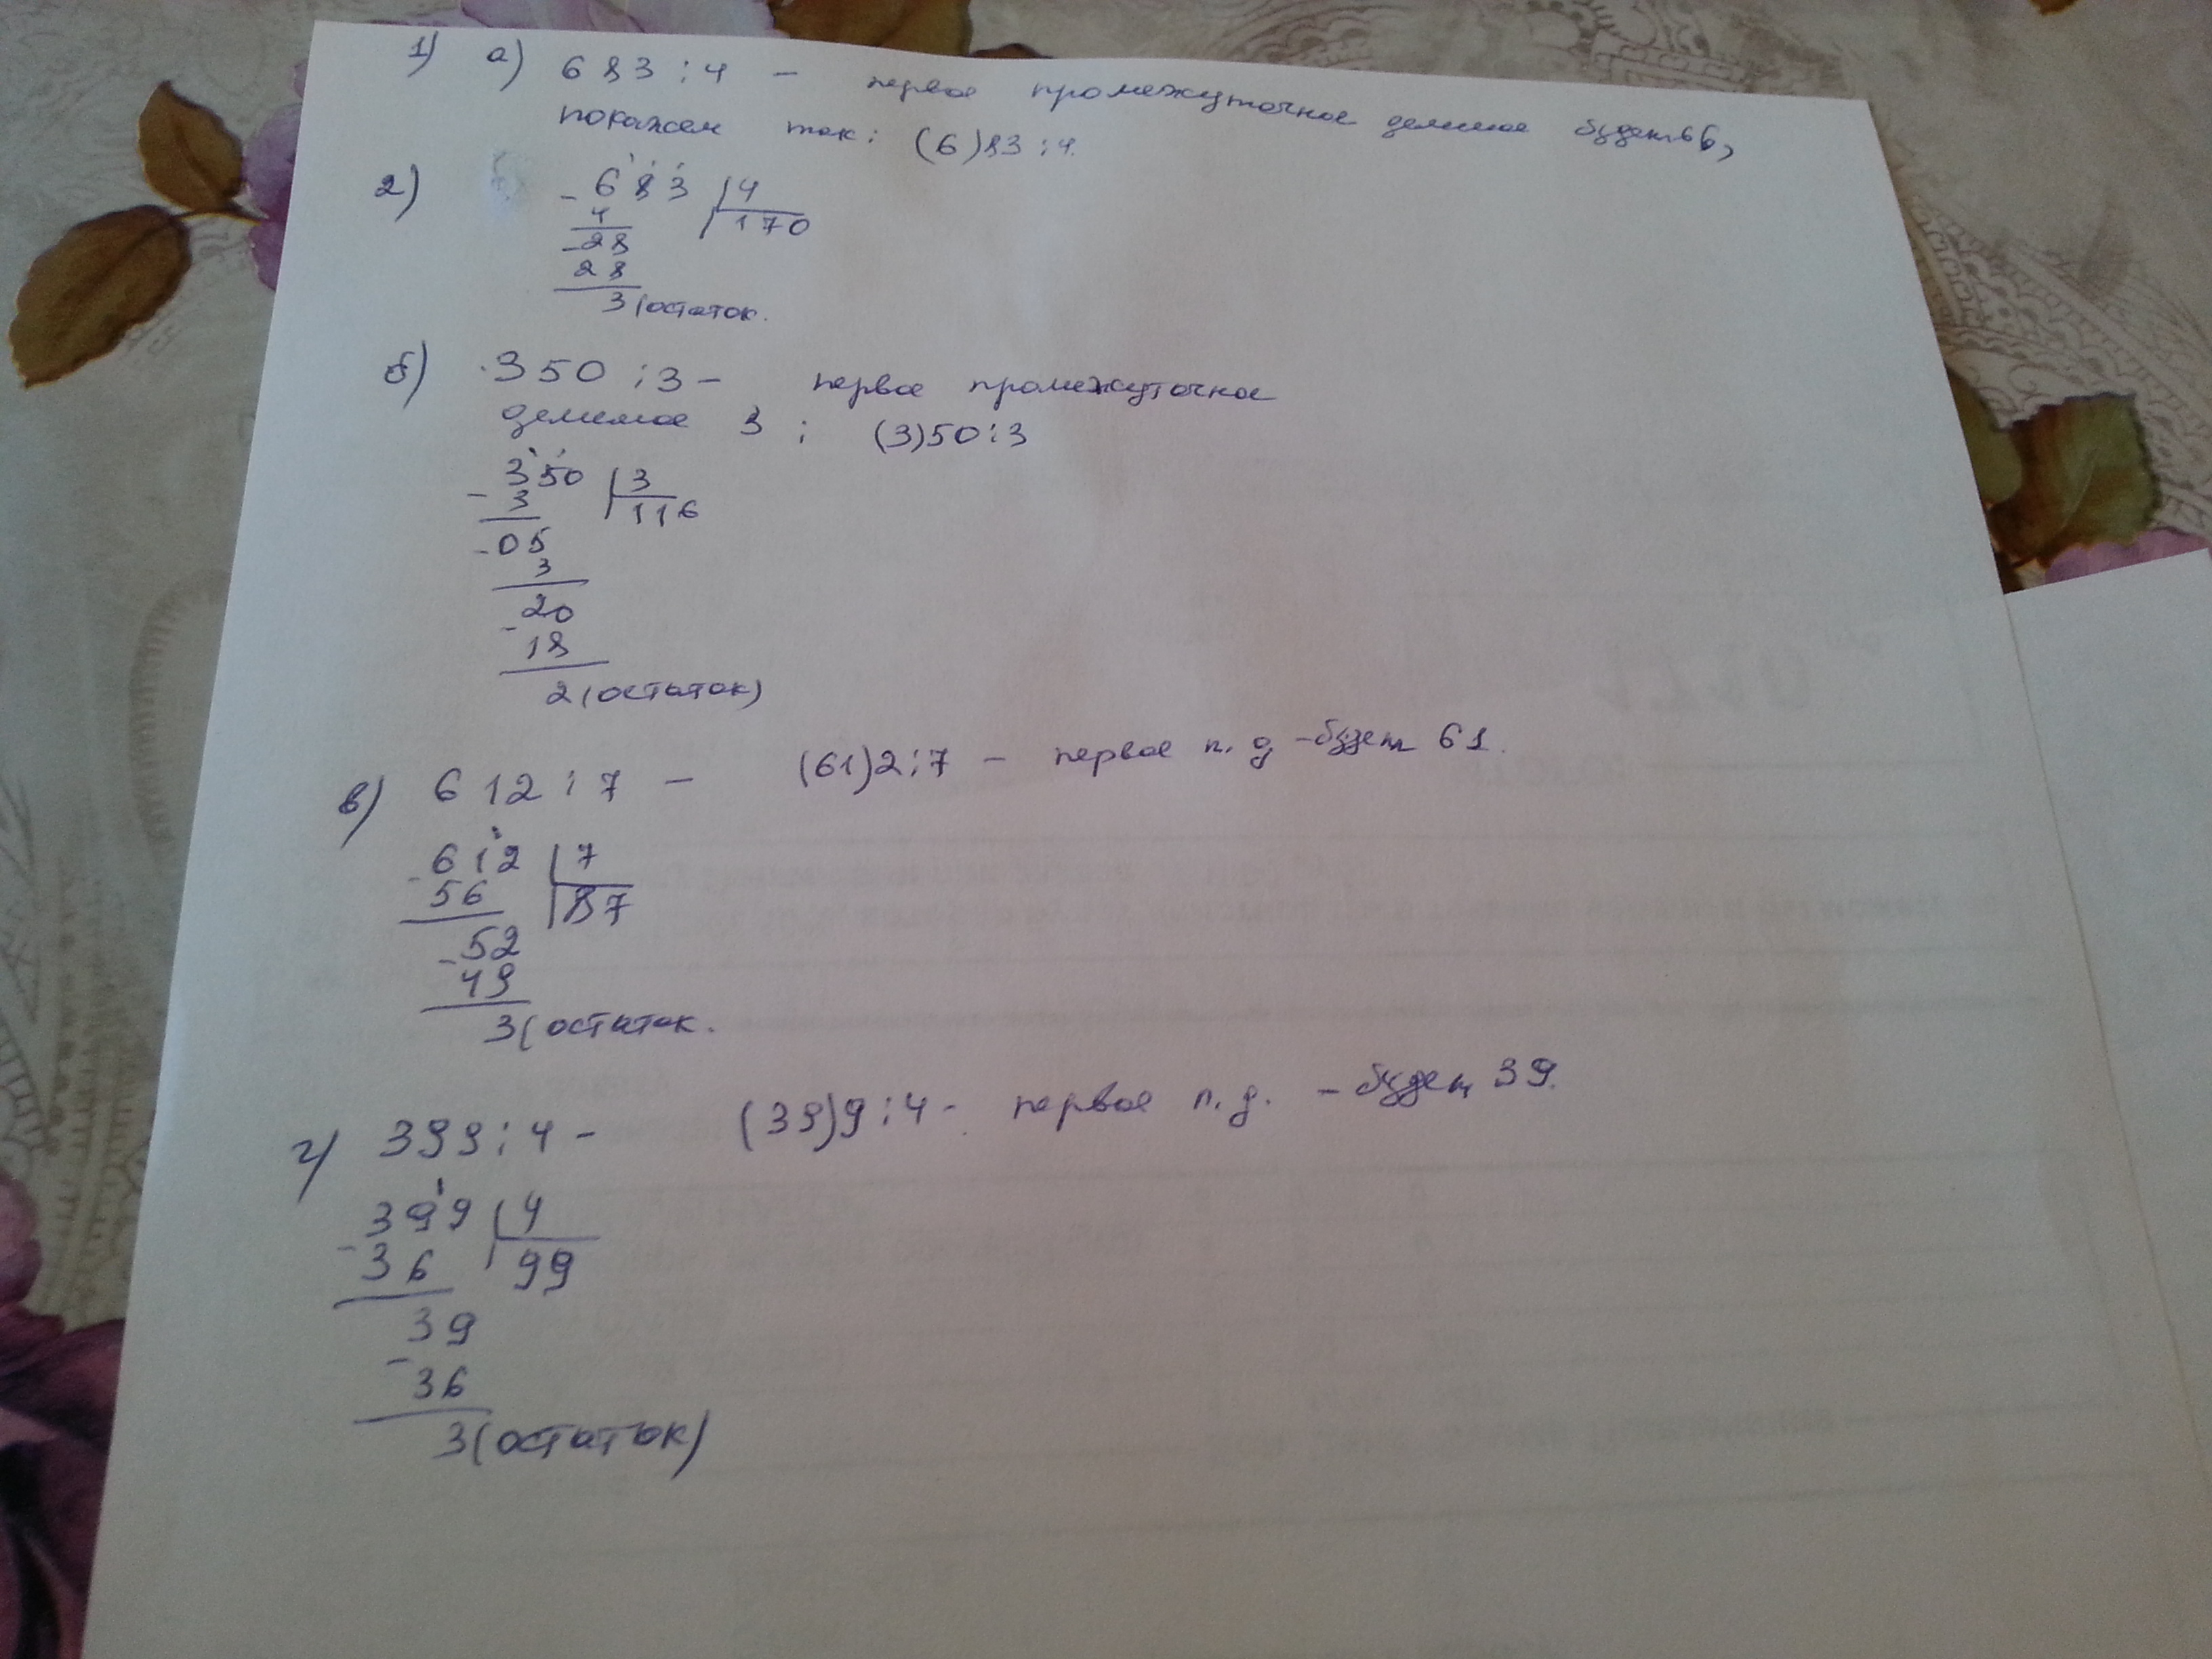 1) а) 683 : 4 – первое промежуточное делимое будет 6,
покажем так: (6)83 : 4.
2) - 683 4
4 170
- 28
28
3 (остаток.
б) 350 : 3 – первое промежуточное
делимое 3 ; (3)50 : 3
- 350 3
3 116
- 05
3
20
-
18
2 (остаток)
в) 612 : 7 – (61)2 : 7 – первое п. д – будет 61.
- 612 7
56 87
- 52
49
3 (остаток.
г) 399 : 4 – (39)9 : 4 - первое п. д. – будет 39.
- 399 4
36 99
39
-
36
3 (остаток)